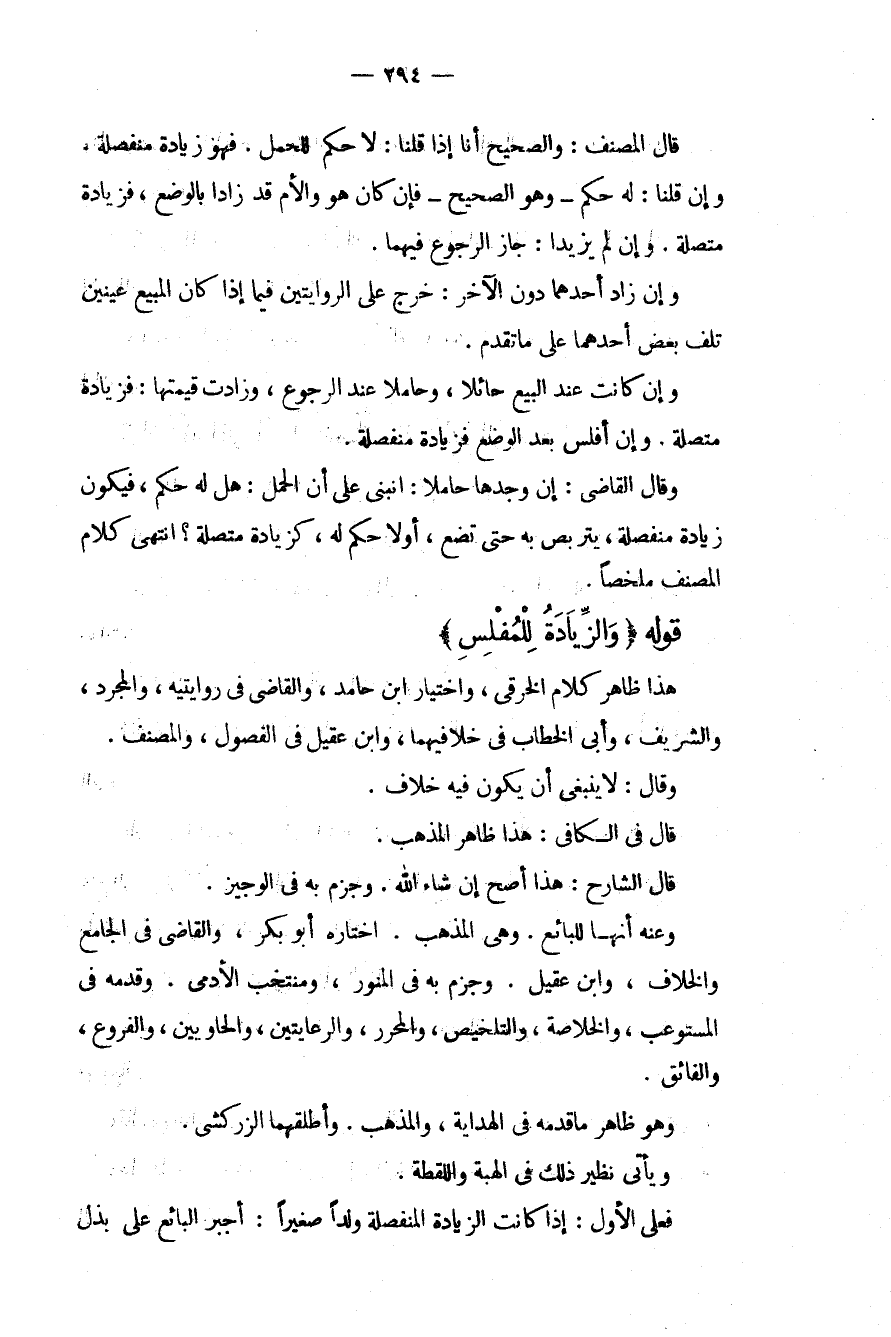 — ٢٩٤ —
قال المصنف : والصحيح أنا إذا قلنا : لا حكم للحمل . فهو زيادة منفصلة .
وإن قلنا : له حكم – وهو الصحيح – فإن كان هو والأم قد زادا بالوضع ، فزيادة
متصلة . وإن لم يزيدا : جاز الرجوع فيهما .
وإن زاد أحدهما دون الآخر : خرج على الروايتين فيما إذا كان المبيع عينين
تلف بعض أحدهما على ماتقدم .
وإن كانت عند البيع حائلا ، وحاملا عند الرجوع ، وزادت قيمتها : فزيادة
متصلة . وإن أفلس بعد الوضع فزيادة منفصلة .
وقال القاضى : إن وجدها حاملا : انبنى على أن الحمل : هل له حكم ، فيكون
زيادة منفصلة ، يتربص به حتى تضع ، أولا حكم له ، كزيادة متصلة ؟ انتهى كلام
المصنف ملخصاً .
قوله ﴿ وَالزِّيَادَةُ لِلْمُفْلِسِ ﴾
هذا ظاهر كلام الخرقى ، واختيار ابن حامد ، والقاضى فى روايتيه ، والمجرد ،
والشريف ، وأبى الخطاب فى خلافيهما ، وابن عقيل فى الفصول ، والمصنف .
وقال : لاينبغى أن يكون فيه خلاف .
قال فى الكافى : هذا ظاهر المذهب .
قال الشارح : هذا أصح إن شاء الله . وجزم به فى الوجيز .
وعنه أنها للبائع . وهى المذهب . اختاره أبو بكر ، والقاضى فى الجامع
والخلاف ، وابن عقيل . وجزم به فى المنور ، ومنتخب الأدمى . وقدمه فى
المستوعب ، والخلاصة ، والتلخيص ، والمحرر ، والرعايتين ، والحاويين ، والفروع ،
والفائق .
وهو ظاهر ماقدمه فى الهداية ، والمذهب . وأطلقهما الزركشى .
ويأتى نظير ذلك فى الهبة واللقطة .
فعلى الأول : إذا كانت الزيادة المنفصلة ولداً صغيراً : أجبر البائع على بذل